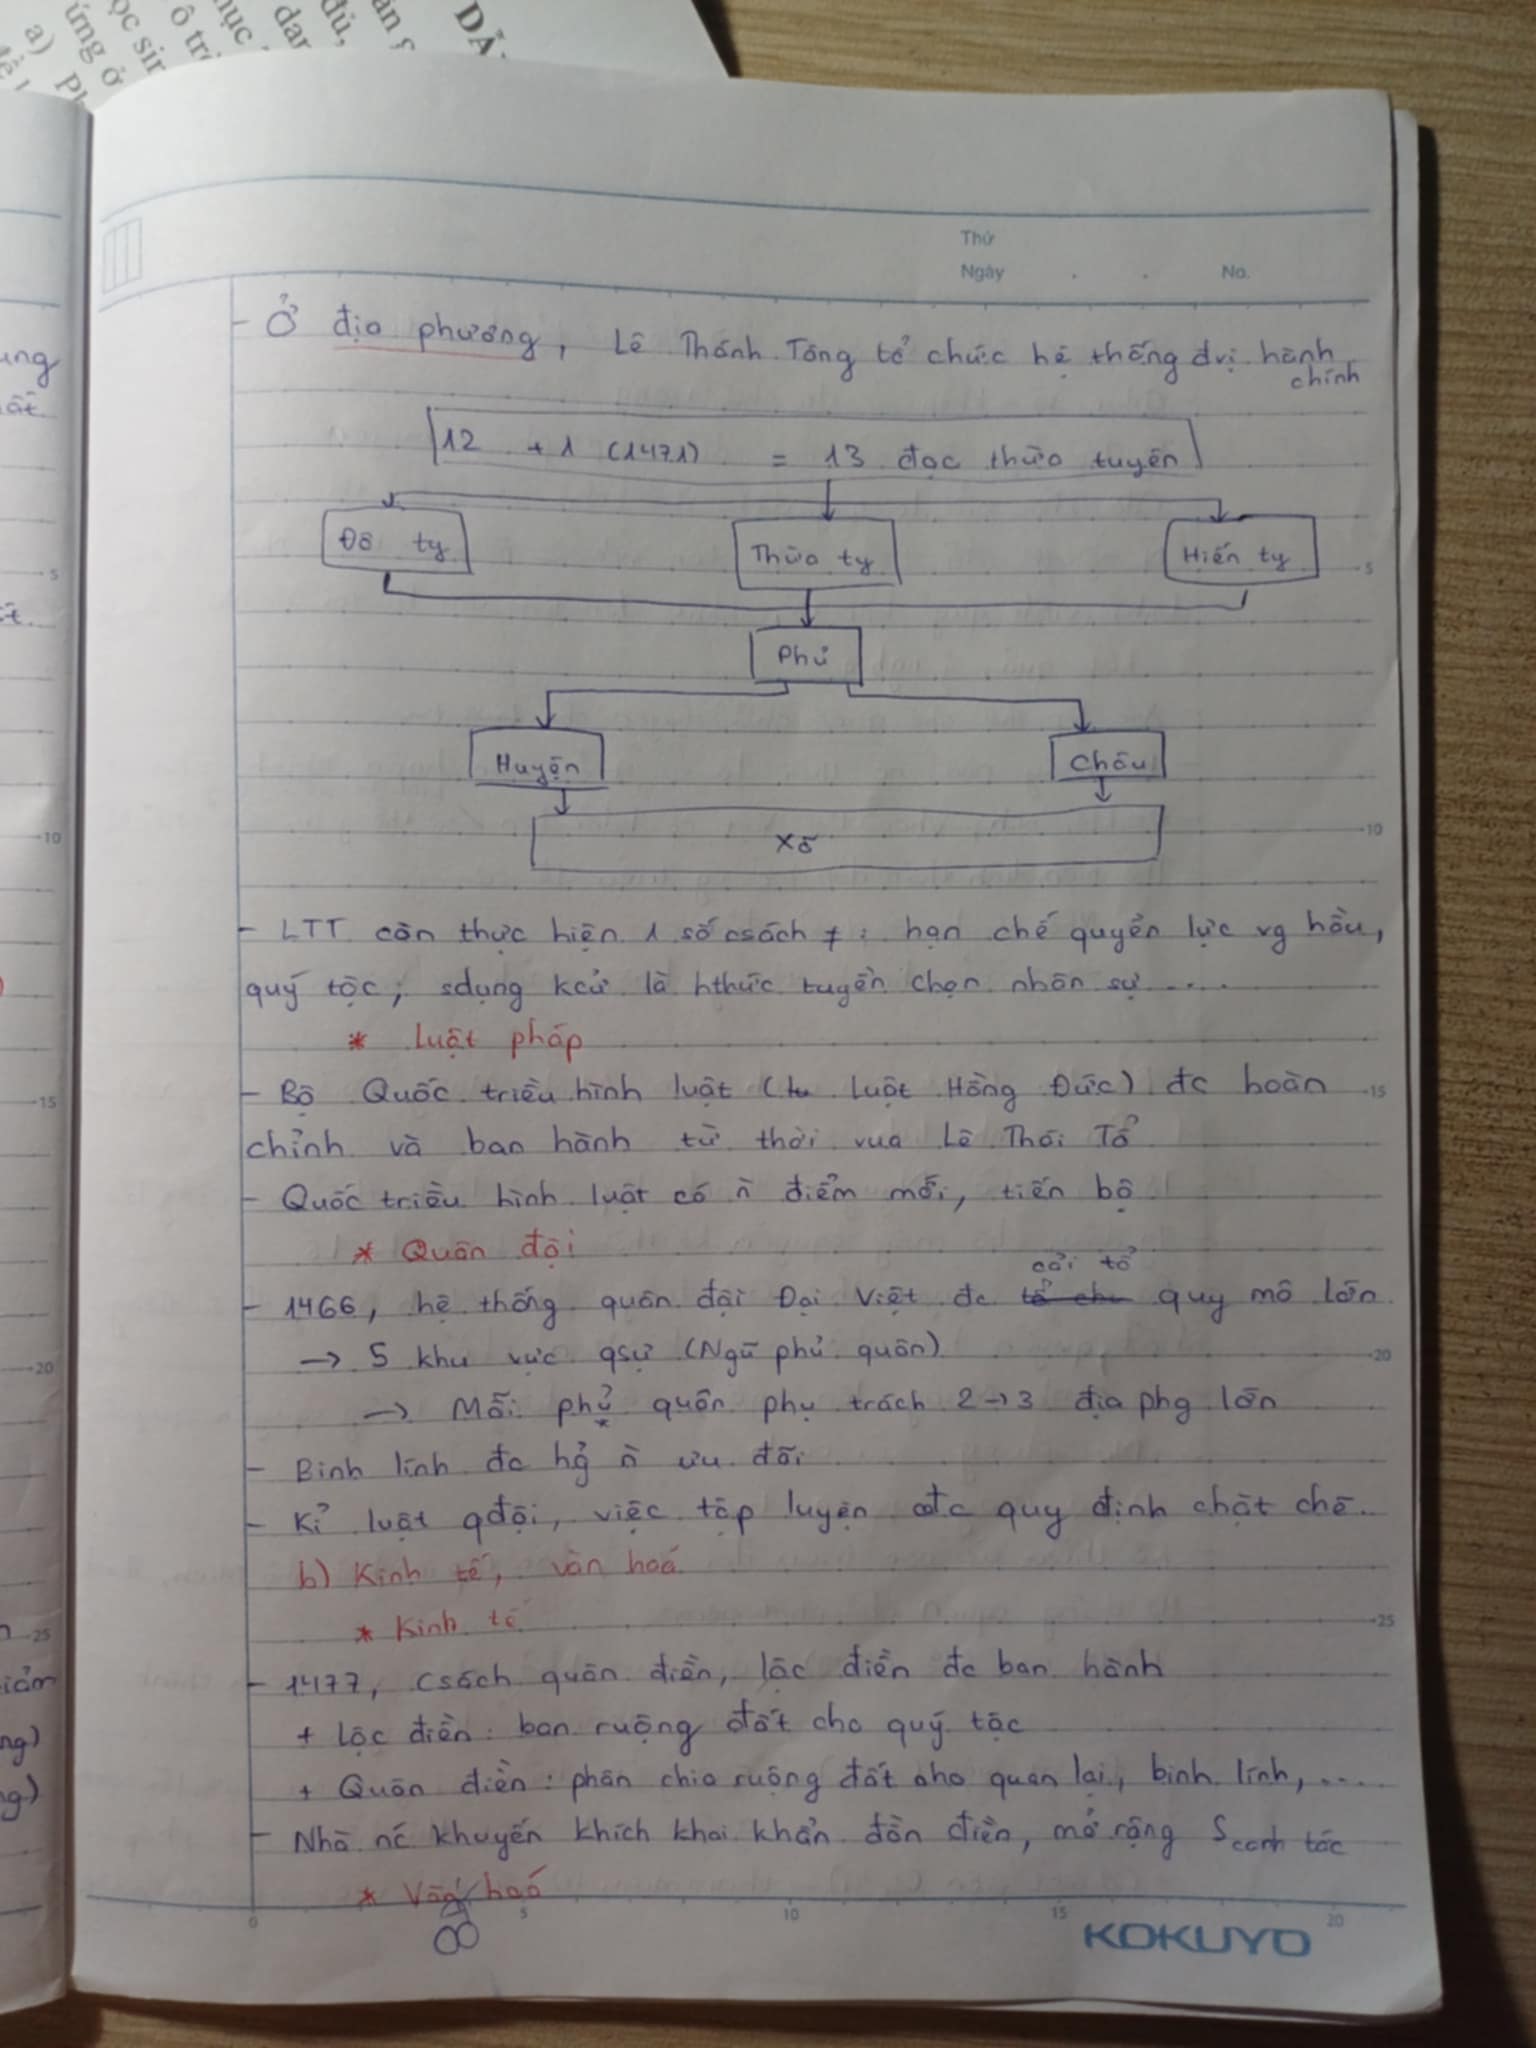 DẪ
a)
Thứ
Ngày . . No.
- Ở địa phương, Lê Thánh Tông tổ chức hệ thống đvị hành
chính
12 + 1 (1471) = 13 đạo thừa tuyên
Đô ty Thừa ty Hiến ty
Phủ
Huyện Châu
Xã
- LTT còn thực hiện 1 số csách ≠ : hạn chế quyền lực vg hầu,
quý tộc; sdụng kcử là hthức tuyển chọn nhân sự ....
* Luật pháp
- Bộ Quốc triều hình luật ( luật Hồng Đức) đc hoàn
chỉnh và ban hành từ thời vua Lê Thái Tổ
- Quốc triều hình luật có ñ điểm mới, tiến bộ
* Quân đội
cải tổ
- 1466, hệ thống quân đội Đại Việt đc quy mô lớn
→ 5 khu vực qsự (Ngũ phủ quân)
→ Mỗi phủ quân phụ trách 2→3 địa phg lớn
- Binh lính đc hg̉ ñ ưu đãi
- Kỉ luật qđội, việc tập luyện đc quy định chặt chẽ.
b) Kinh tế, văn hoá
* Kinh tế
- 1477, csách quân điền, lộc điền đc ban hành
+ Lộc điền : ban ruộng đất cho quý tộc
+ Quân điền : phân chia ruộng đất cho quan lại, binh lính, ....
- Nhà nc khuyến khích khai khẩn đồn điền, mở rộng S canh tác
* Văn hoá
0 5 10 15 20
KOKUYO